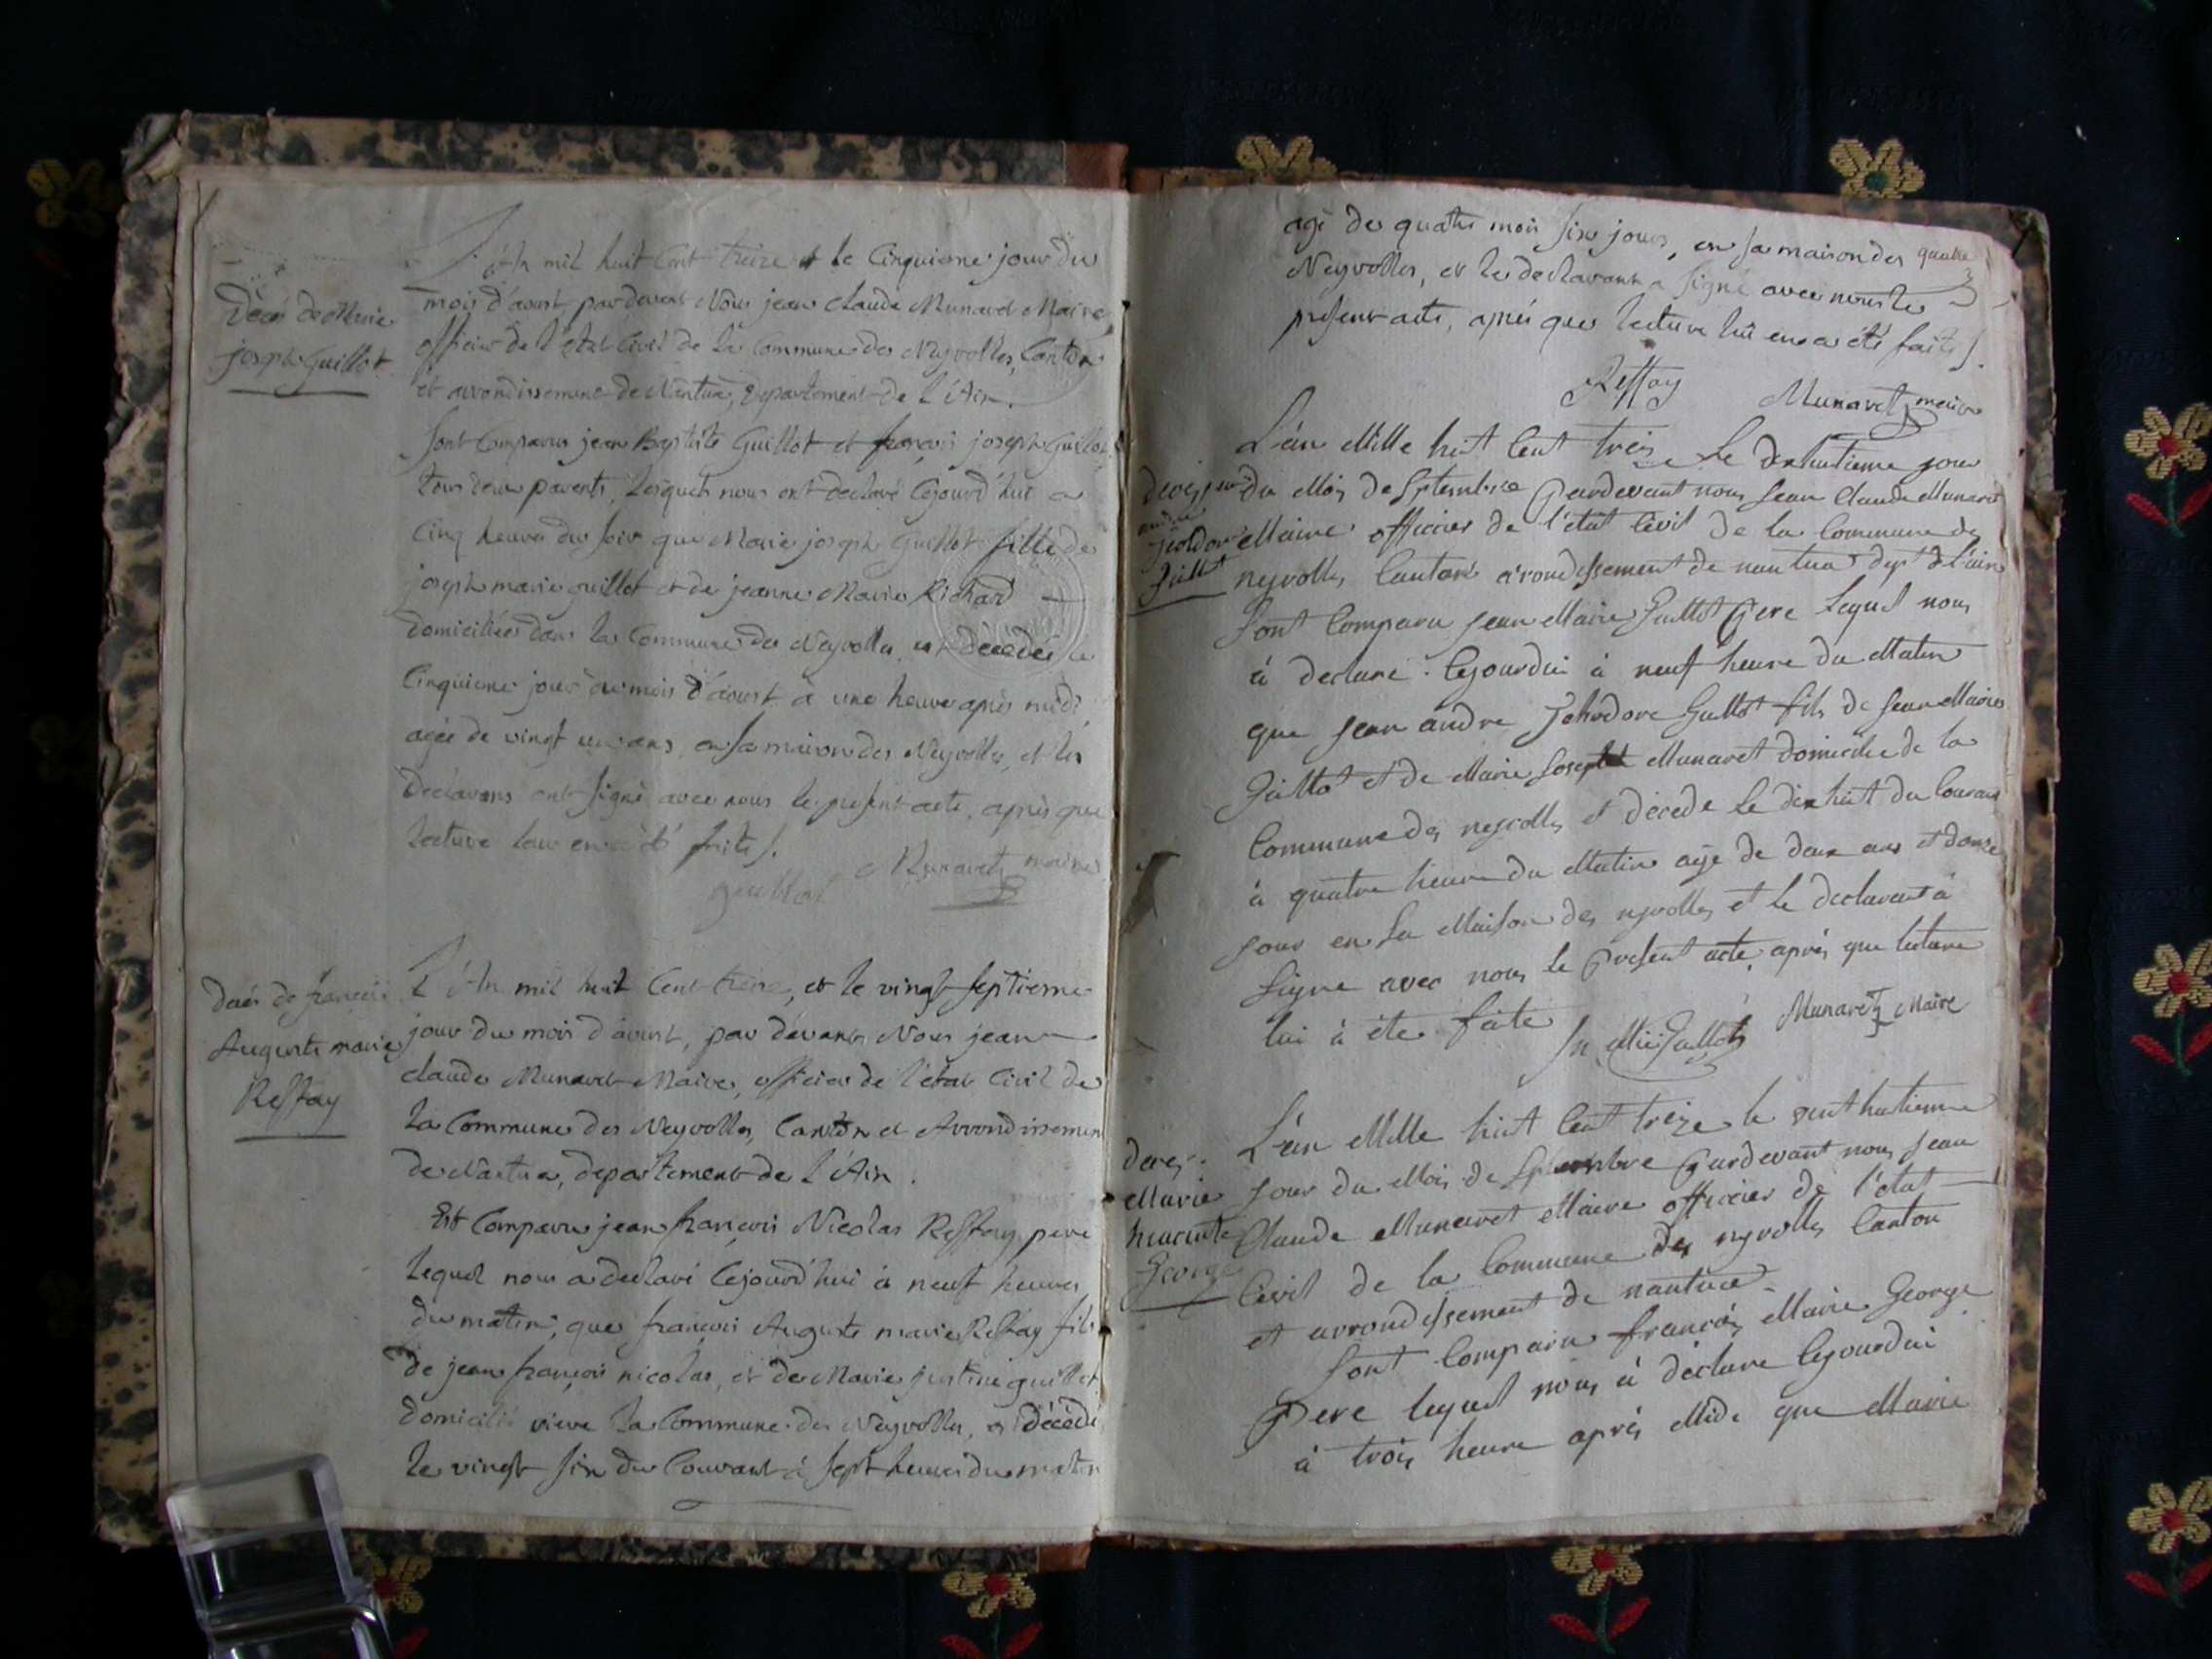 Décès de Marie
joseph Guillot
L'An mil huit Cent treize et le Cinquieme jour du
mois d'aoust, pardevant Nous jean claude Munaret Maire,
officier de l'état Civil de la Commune des Neyrolles, Canton
et arrondissement de Nantua, Departement de l'Ain.
Sont Comparus jean Baptiste Guillot et françois joseph Guillot,
tous deux parents, lesquels nous ont declaré Cejourd'hui a
Cinq heures du soir que Marie joseph Guillot fille de
joseph marie guillot et de jeanne Marie Richard
domiciliées dans la Commune des Neyrolles, est décédée le
Cinquieme jour du mois d'aoust a une heure après midi,
agée de vingt un ans, en sa maison des Neyrolles, et les
Déclarans ont signé avec nous le présent acte, après que
lecture leur en a été faite.
guillot Munaret maire
Décès de françois
Auguste marie
Reffay
L'An mil huit Cent treize, et le vingt septieme
jour du mois d'aoust, par devant Nous jean
claude Munaret Maire, officier de l'état Civil de
la Commune des Neyrolles, Canton et Arrondissement
de Nantua, departement de l'Ain.
Est Comparu jean françois Nicolas Reffay pere
lequel nous a declaré Cejourd'hui à neuf heures
du matin, que françois Auguste marie Reffay fils
de jean françois nicolas, et de Marie justine guillot,
domicilié la Commune des Neyrolles, est décédé
le vingt six du Courant à sept heures du matin
agé de quatre mois six jours, en sa maison des quatre
Neyrolles, et le declarant a signé avec nous le
présent acte, après que lecture lui en a été faite.
Reffay Munaret maire
deces jean
andre
guillot
L'an Mille huit Cent treize Le dixhuitieme jour
du Mois de Septembre Pardevant nous Jean Claude Munaret
Maire officier de l'état Civil de la Commune des
neyrolles Canton arondissement de nantua dept de l'ain
Sont Comparu jean Marie Guillot Pere Lequel nous
à declaré Cejourdui à neuf heure du Matin
que jean andre Guillot fils de jean Marie
Guillot et de Marie Joseph Munaret domicilie de la
Commune des neyrolles et décédé le dix huit du Courant
à quatre heure du Matin age de deux ans et douze
jour en sa Maison des neyrolles et le declarant à
Signe avec nous le Présent acte après que lecture
lui à ete faite
Jn Mie Guillot Munaret Maire
deces
Marie
hiacinte
George
L'an Mille huit Cent treize le vint huitieme
jour du Mois de Septembre Pardevant nous Jean
Claude Munaret Maire officier de l'état
Civil de la Commune des neyrolles Canton
et arrondissement de nantua
Sont Comparu françois Marie George
Pere lequel nous à déclare Cejourdui
à trois heure après Midi que Marie